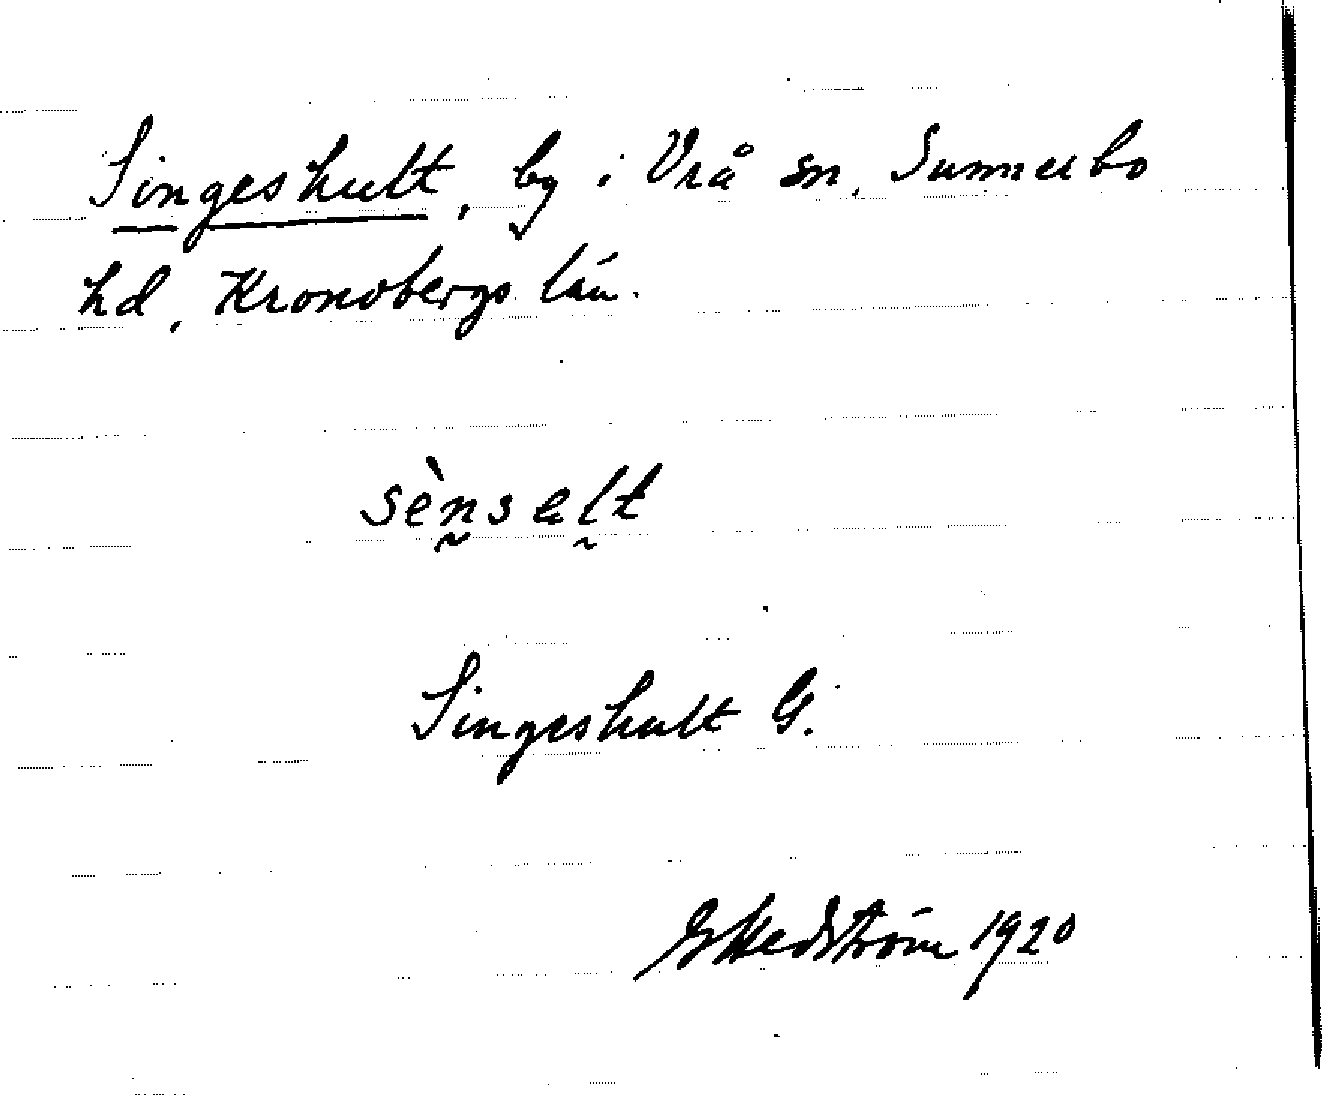 Singeshult, by i Vrå sn, Sunnerbo
hd, Kronobergs län.
sèn̰sel̰t
Singeshult G.
G Hedström 1920